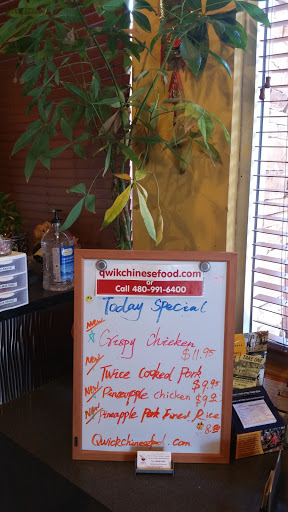 qwikchinesefood.com
or
Call 480-991-6400
Today Special
New
Crispy Chicken
$11.95
New
Twice Cooked Pork
$9.95
New Pineapple chicken $9.2
New Pineapple Pork Fried Rice
8.50
Qwickchinesefood.com
TAKE ONE